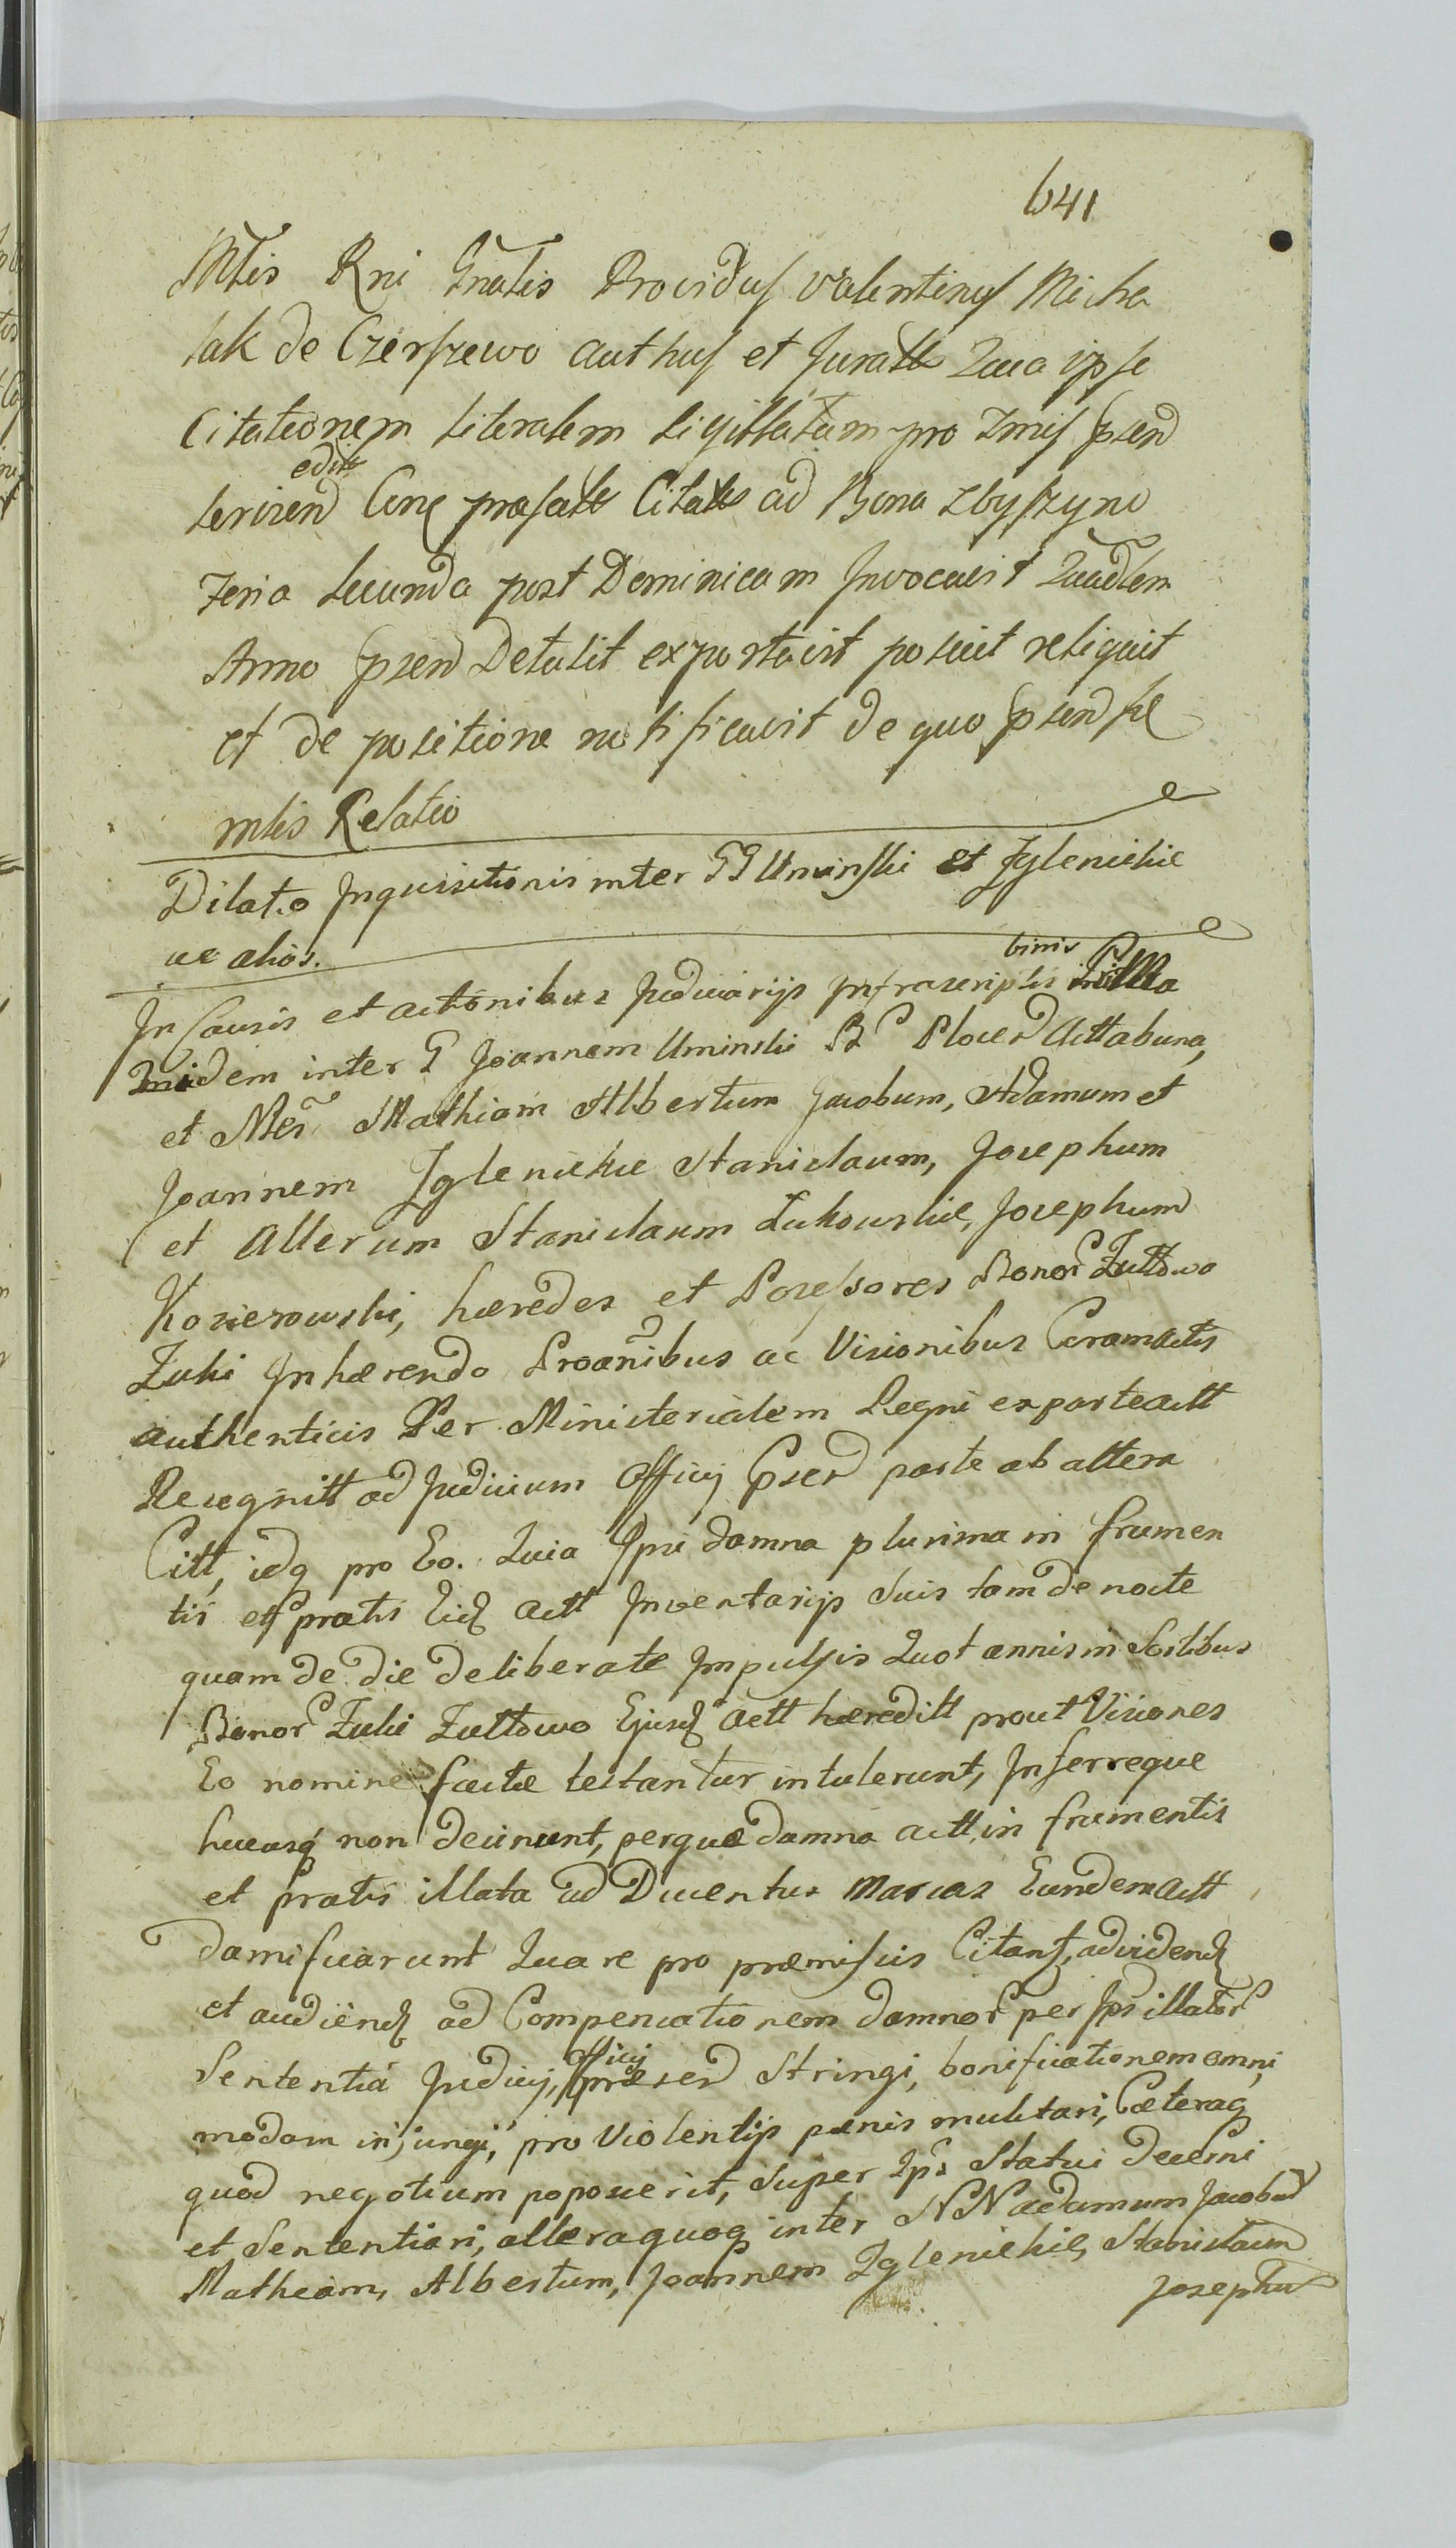 641
Mtis Rni Gnalis Providus Valentinus Micha
lak de Czerszewo authus et Juratt Quia ipse
Citationem literalem sigillatam pro Tmis psend
edit
terizend Conq prafatt Citatts ad Bona Zbyszyno
Feria secunda post Dominicam Invocavit Quadlem
Anno psend Detulit exportavit posuit reliquit
et de positione notificavit de quo psend se
mtis Relatio
Dilatio Inquisitionis inter GG Uminski et Iglenickie
ac alios.
binis
In Causis et actionibus Judiciarijs Infrascriptis
Inidem inter G Joannem Uminski Bc Plocen Acttabuna,
et Nles Mathiam Albertum Jacobum, Adamum et
Joannem Iglenickie Stanislaum, Josephum
et Alterum Stanislaum Zukowskie, Josephum
Kozierowski, hæredes et Possessores Bonor Zuttowo
Zuki Inhærendo Proanibus ac Visionibus Coram actis
authenticis Per Ministerialem Regni exparte actt
Recognitt ad Judicium Officij Psen parte ab altera
Citt, idq pro Eo. Quia Ipsi damna plurima in frumen
tis et pratis Eid Actt Inventarijs suis tam de nocte
quam de die deliberate Impulsis Quot annis in Sortibus
Bonor Zuki Zuttowo Ejusd Actt hæreditt prout Visiones
Eo nomine factæ testantur intulerunt, Inferreque
hucusq non desinunt, perquæ damna actt in frumentis
et pratis illata ad Ducentas Marcas Eundem Actt
damificarunt Quare pro præmissis Citant, ad vidend
et audiend ad Compensationem damnor per Ipsos illator
officij
Sententiâ Judicij, præsen Stringi, bonificationem omni
modam injungi, pro Violentijs pænis mulctari, Cæteraq
quod negotium poposcerit, super Ips Statui decerni
et Sententiari, altera quoq inter NN Adamum Jacobum
Mathiam, Albertum, Joannem Iglenickie, Stanislaum
Josephum